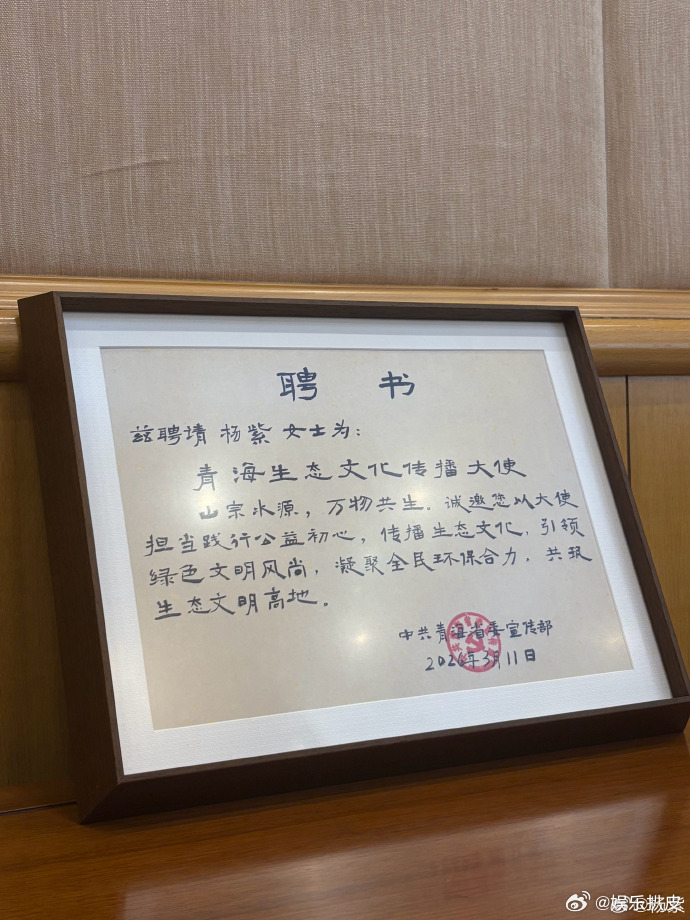 聘 书
兹聘请 杨紫 女士为：
青海生态文化传播大使
山宗水源，万物共生。诚邀您以大使
担当践行公益初心，传播生态文化，引领
绿色文明风尚，凝聚全民环保合力，共筑
生态文明高地。
中共青海省委宣传部
2026年3月11日
@娱乐扒皮